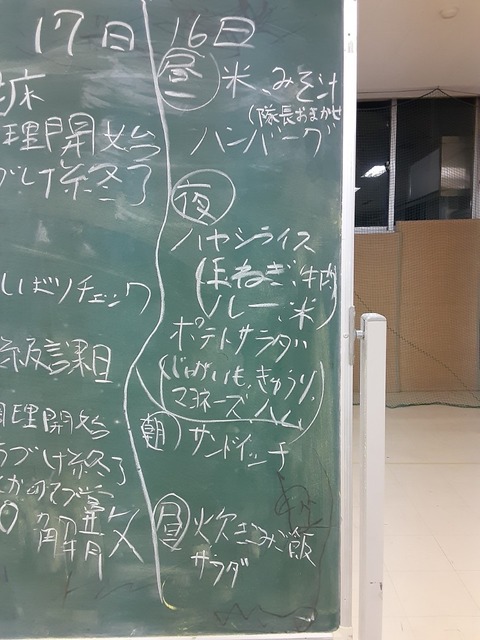 17日
床
理開始
づけ終了
しばりチェック
級課目
調理開始
づけ終了
解散
16日
昼 米、みそ汁
(隊長おまかせ
ハンバーグ
夜
ハヤシライス
(玉ねぎ、牛肉
ルー、米)
ポテトサラダ
(じゃがいも、きゅうり、
マヨネーズ ハム)
朝 サンドイッチ
昼 炊きこみご飯
サラダ